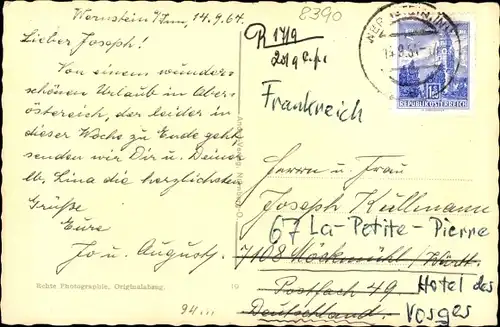 Wernstein/Inn, 14.9.64.
Lieber Joseph!
Von einem wunder-
schönen Urlaub in Ober-
österreich, der leider in
dieser Woche zu Ende geht,
senden wir Dir u. Deiner
lb. Lina die herzlichsten
Grüße
Eure
Jo u. Augusty.
Echte Photographie, Originalabzug.
19
94...
8390
R 17/9
20/9
REPUBLIK ÖSTERREICH
Frankreich
Herrn u. Frau
Joseph Kullmann
67 La-Petite-Pierre
7108 Möckmühl / Württ.
Postfach 49 Hotel des
Deutschland. Vosges